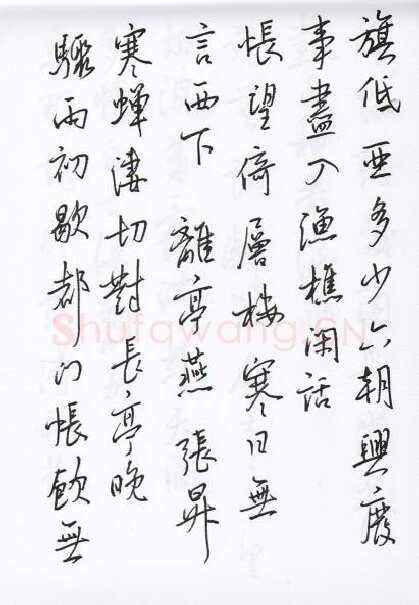 旗低亞多少六朝興廢
事盡入漁樵閑話
悵望倚層樓寒日無
言西下 離亭燕 張昇
寒蟬淒切對長亭晚
驟雨初歇都门帳飲無
Shufawang.CN